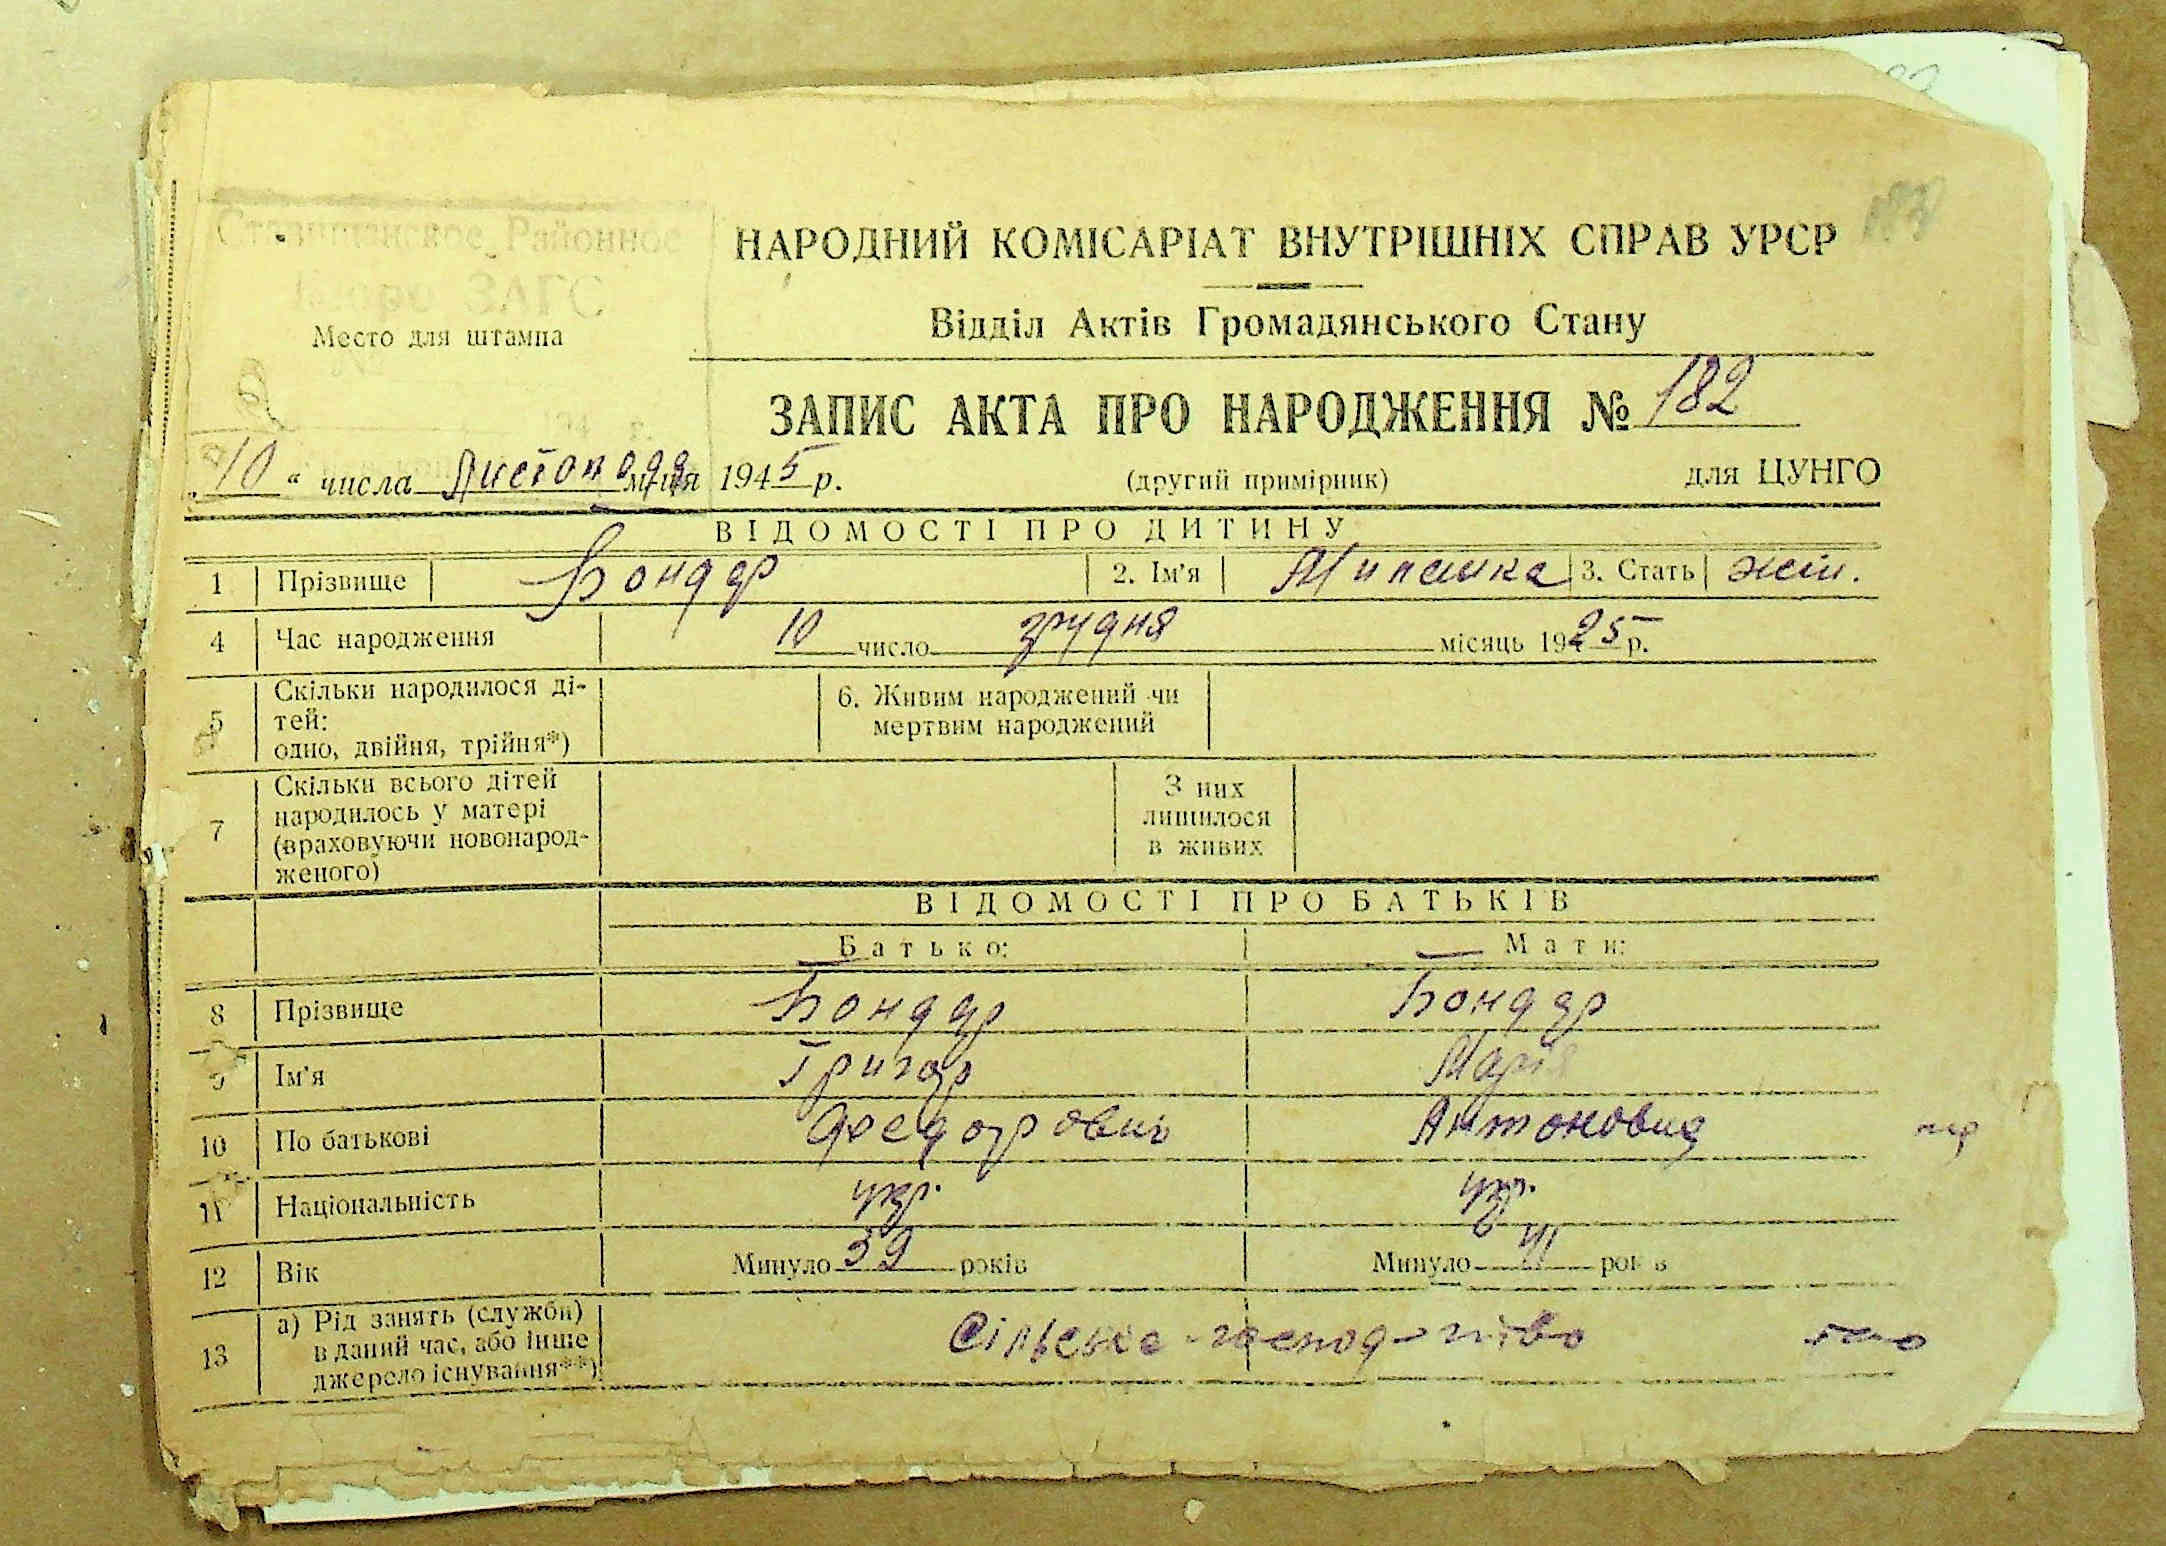 Ставищанское Районное
Бюро ЗАГС
Место для штампа
НАРОДНИЙ КОМІСАРІАТ ВНУТРІШНІХ СПРАВ УРСР
Відділ Актів Громадянського Стану
ЗАПИС АКТА ПРО НАРОДЖЕННЯ № 182
10 " числа Листопада м-ця 1945 р. (другий примірник) для ЦУНГО
ВІДОМОСТІ ПРО ДИТИНУ
1 Прізвище Бондар 2. Ім'я 3. Стать жін.
4 Час народження 10 число грудня місяць 1925 р.
5 Скільки народилося ді-
тей:
одно, двійня, трійня*)
6. Живим народжений чи
мертвим народжений
7 Скільки всього дітей
народилось у матері
(враховуючи новонарод-
женого)
З них
лишилося
в живих
ВІДОМОСТІ ПРО БАТЬКІВ
Батько: Мати:
8 Прізвище Бондар Бондар
9 Ім'я Григор Марія
10 По батькові Федорович Антоновна
11 Національність укр. укр.
12 Вік Минуло 39 років Минуло 41 років
13 а) Рід занять (служби)
в даний час, або інше
джерело існування**)
Сільське